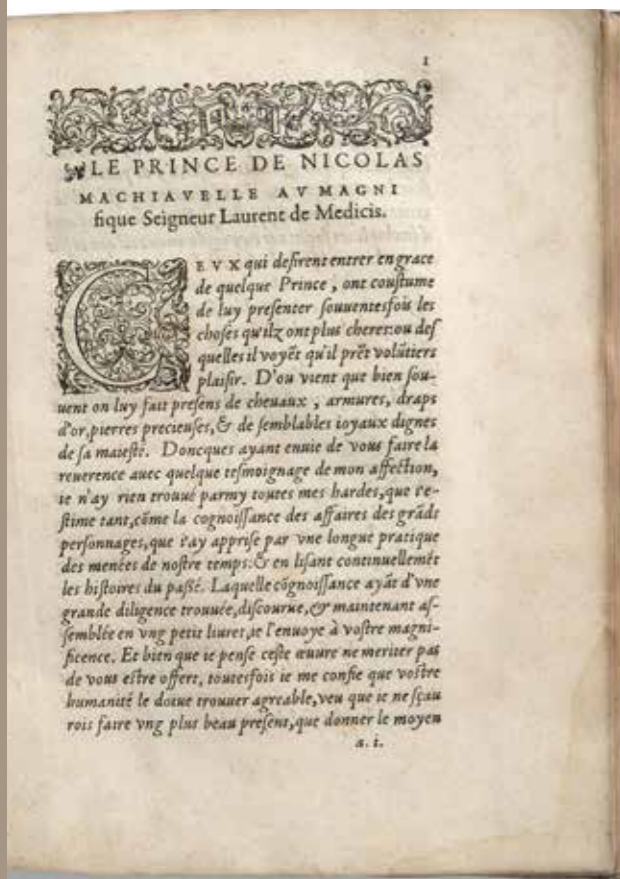 1
LE PRINCE DE NICOLAS
MACHIAVELLE AV MAGNI
fique Seigneur Laurent de Medicis.
CEVX qui deſirent entrer en grace
de quelque Prince, ont couſtume
de luy preſenter ſouuentesfois les
choſes qu'ilz ont plus cheres: ou deſ
quelles il voyēt qu'il prēt volūtiers
plaiſir. D'ou vient que bien ſou-
uent on luy fait preſens de cheuaux, armures, draps
d'or, pierres precieuſes, & de ſemblables ioyaux dignes
de ſa maieſté. Doncques ayant enuie de vous faire la
reuerence auec quelque teſmoignage de mon affection,
ie n'ay rien trouué parmy toutes mes hardes, que i'e-
ſtime tant, cōme la cognoiſſance des affaires des grāds
perſonnages, que i'ay appriſe par vne longue pratique
des menées de noſtre temps: & en liſant continuellemēt
les hiſtoires du paſſé. Laquelle cōgnoiſſance ayāt d'vne
grande diligence trouuée, diſcourue, & maintenant aſ-
ſemblée en vng petit liuret, ie l'enuoye à voſtre magni-
ficence. Et bien que ie penſe ceſte œuure ne meriter pas
de vous eſtre offert, toutesfois ie me confie que voſtre
humanité le doiue trouuer agreable, veu que ie ne ſçau
rois faire vng plus beau preſent, que donner le moyen
a. i.